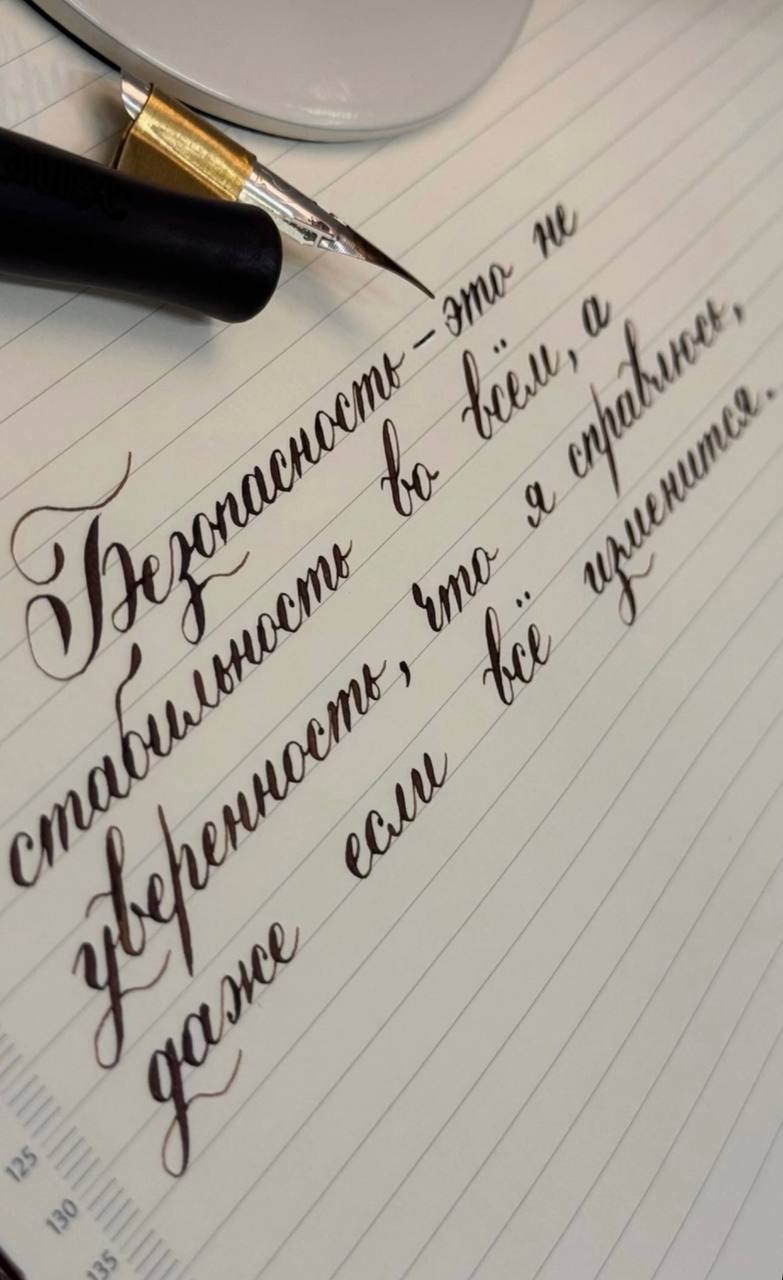 Безопасность – это не
стабильность во всём, а
уверенность, что я справлюсь,
даже если всё изменится.
125
130
135